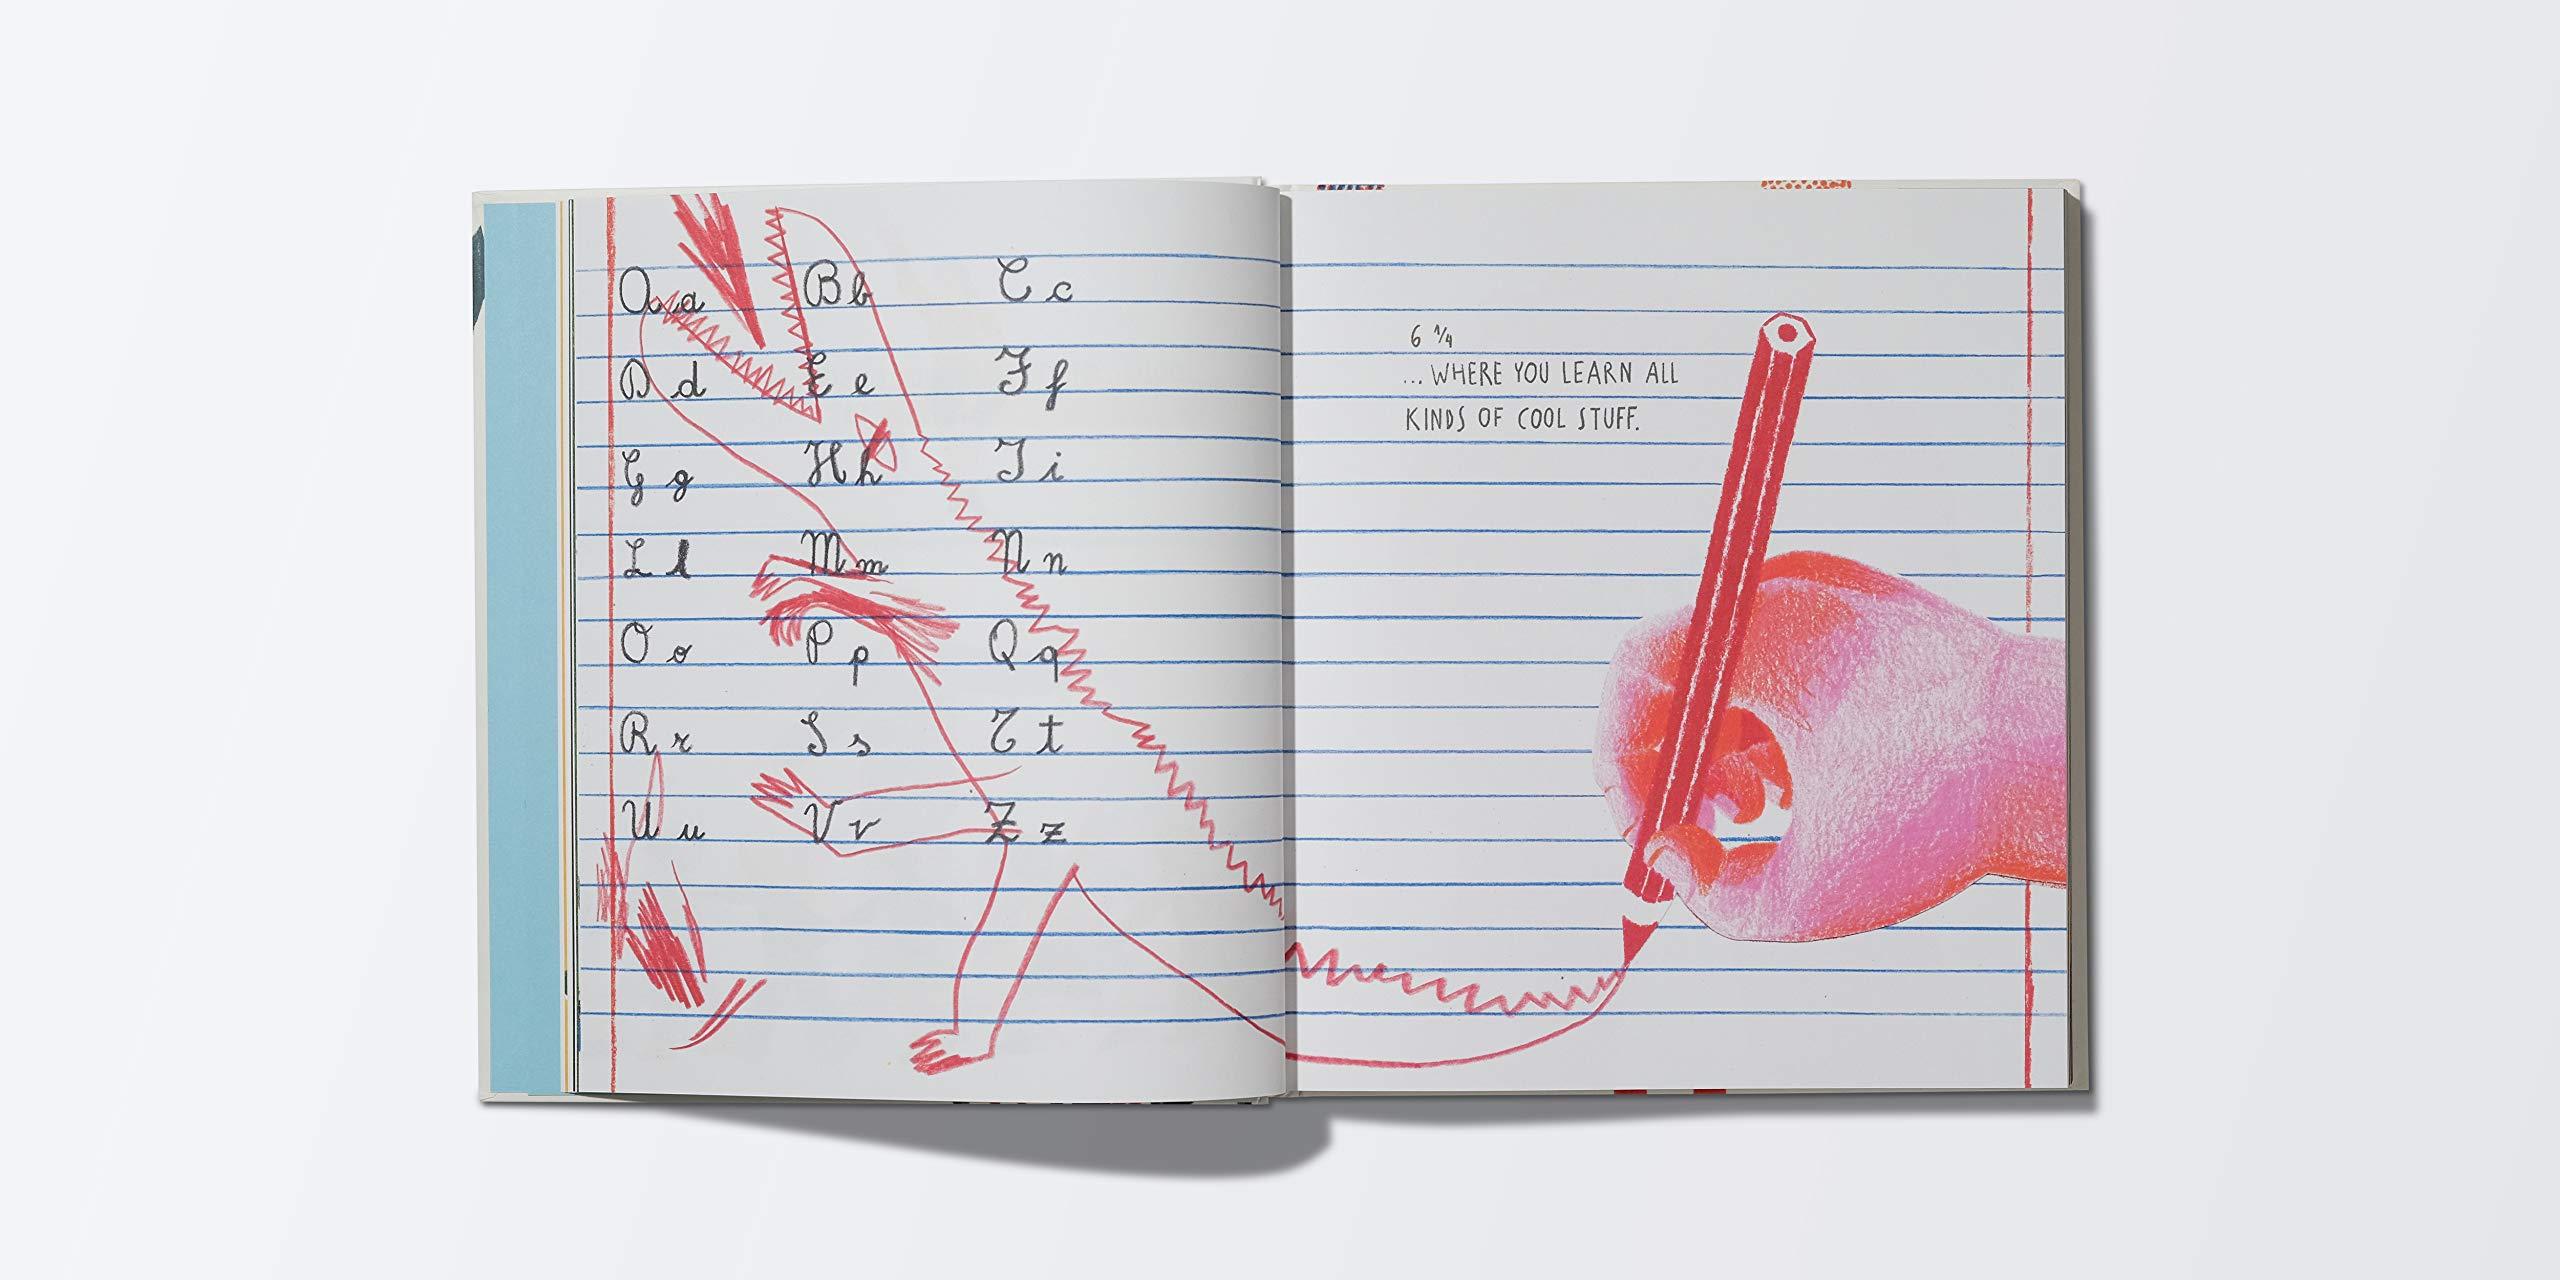 A a B b C c
D d E e F f
G g H h I i
L l M m N n
O o P p Q q
R r S s T t
U u V v Z z
6 1/4
... WHERE YOU LEARN ALL
KINDS OF COOL STUFF.